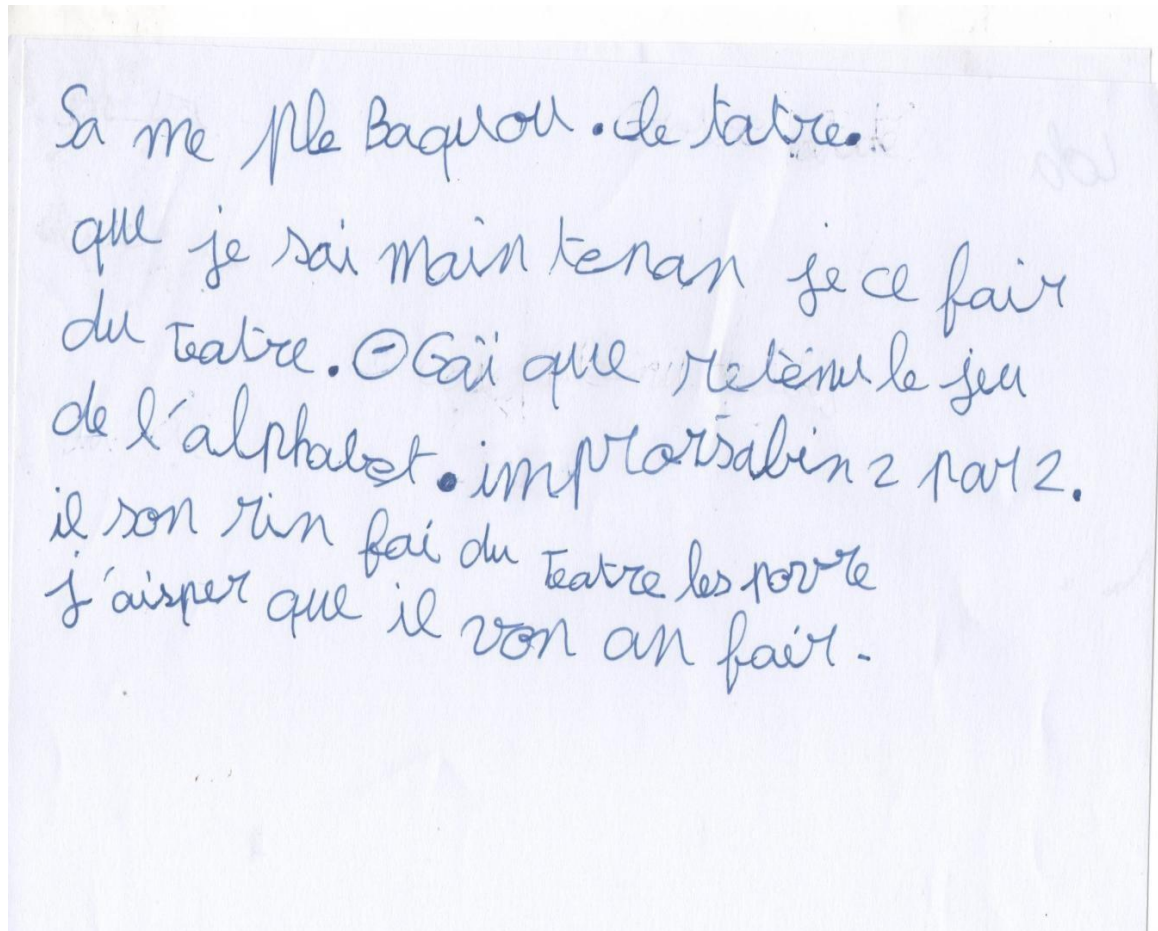 Sa me ple Baquou. le tatre.
que je sai main tenan je ce fair
du teatre. Gaï que retènu le jeu
de l'alphabet. 2 par 2.
il son rin fai du teatre les povre
j'aisper que il von an fair.